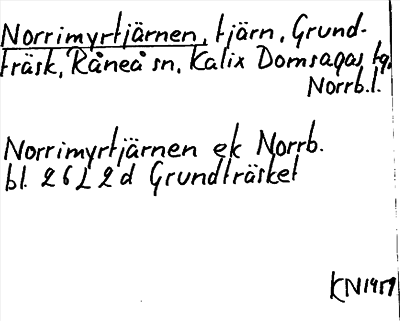 Norrimyrtjärnen, tjärn, Grund-
träsk, Råneå sn, Kalix Domsagas tg,
Norrb.l.
Norrimyrtjärnen ek Norrb.
bl. 26 L 2 d Grundträsket
KN 1959